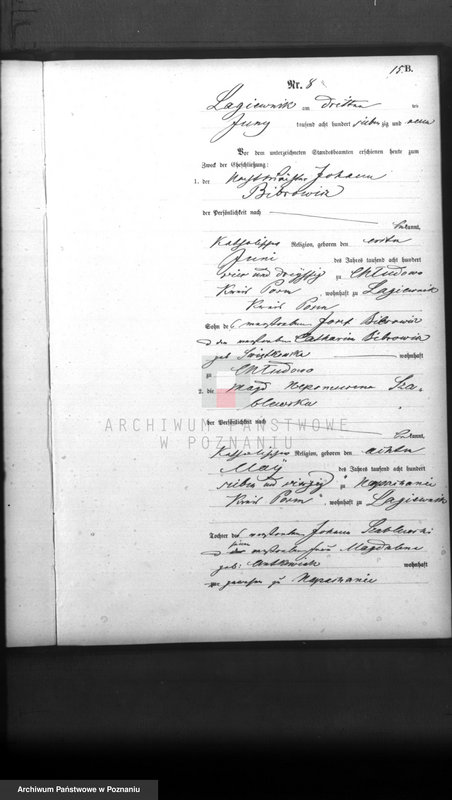 15. B.
Nr. 8
Lagiewnik am dritten
Juny tausend acht hundert sieben zig und neun
Vor dem unterzeichneten Standesbeamten erschienen heute zum
Zweck der Eheschließung:
1. der Johann
Bibrowicz
der Persönlichkeit nach
bekannt,
Katholischer Religion, geboren den ersten
Juni des Jahres tausend acht hundert
vier und dreyßig zu Chludowo
Kreis Posen, wohnhaft zu Lagiewnik
Kreis Posen
Sohn des verstorbenen Bibrowicz
der verstorbenen Catharina Bibrowicz
geb wohnhaft
zu Chludowo
2. die Magd Nepomucena Sza-
blewska
der Persönlichkeit nach
bekannt,
Katholischer Religion, geboren den achten
May des Jahres tausend acht hundert
sieben und vierzig zu
Kreis Posen, wohnhaft zu Lagiewnik
Tochter des verstorbenen Johann Szablewski
verstorbenen Frau Magdalena
geb: wohnhaft
gewesen zu
ARCHIWUM PAŃSTWOWE
W POZNANIU
Archiwum Państwowe w Poznaniu